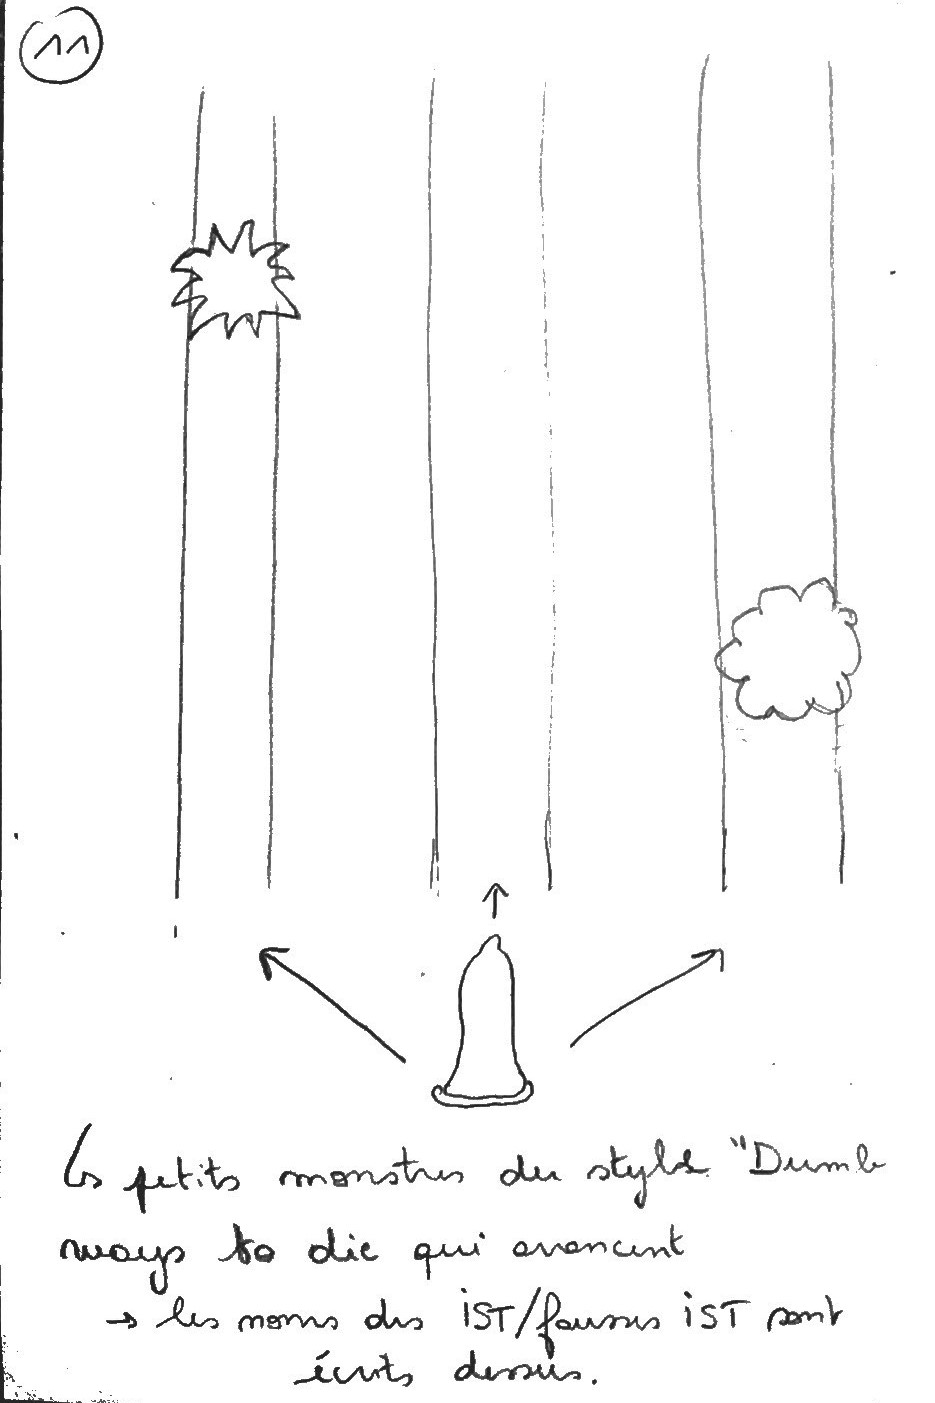 11
Les petits monstres du style "Dumb
ways to die qui avancent
→ les noms des IST/fausses IST sont
écrits dessus.